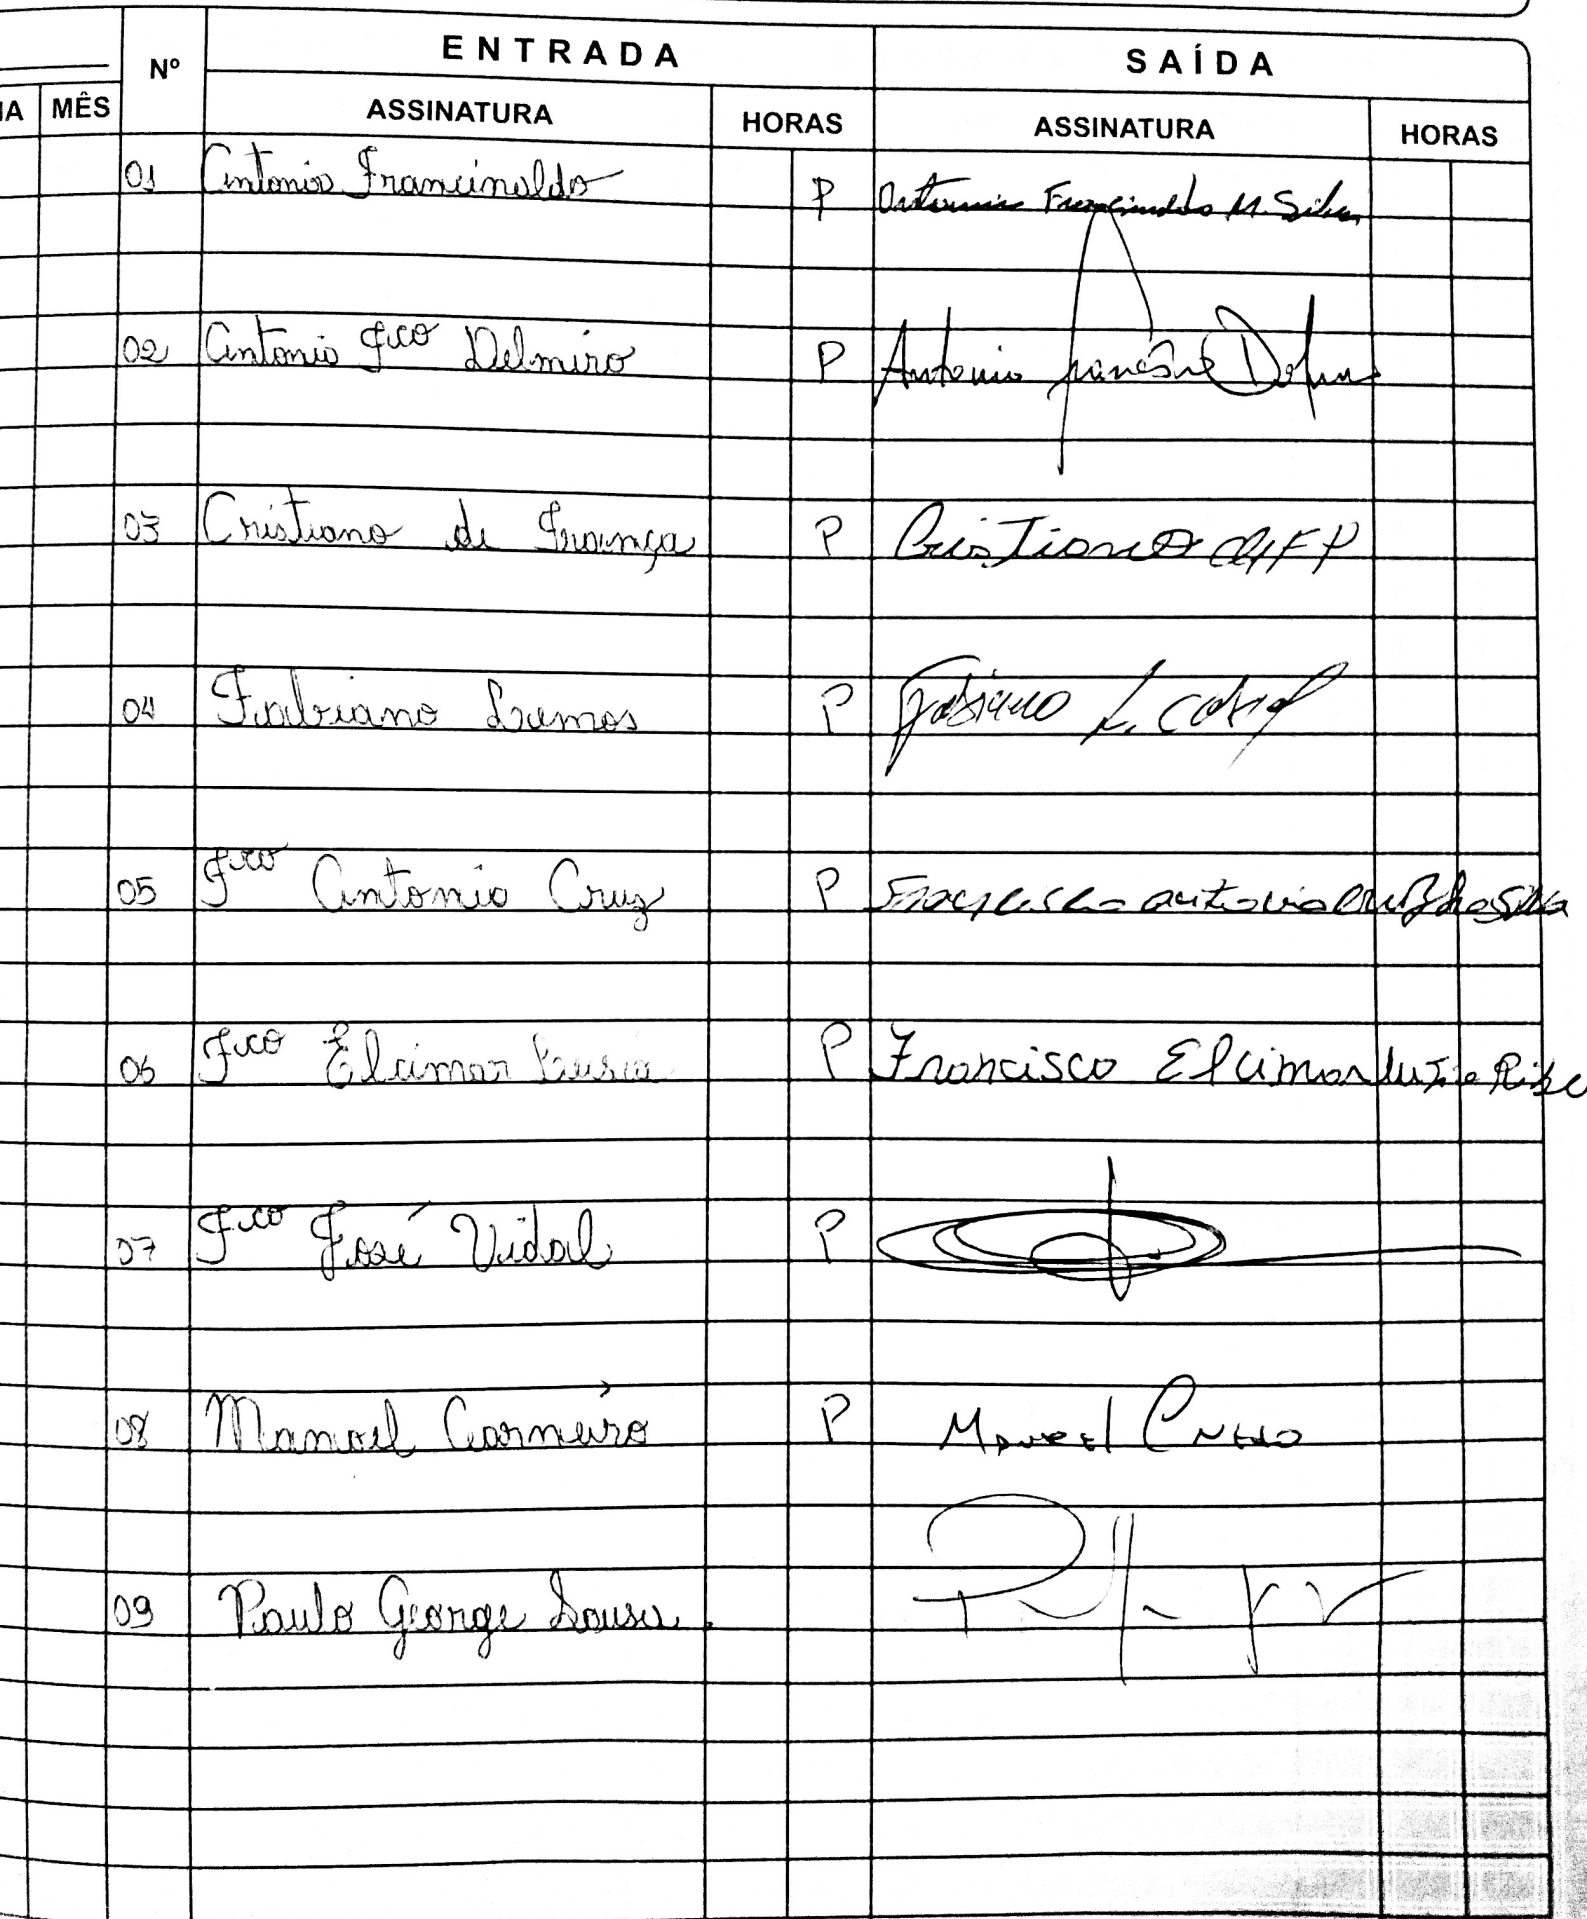 ENTRADA SAÍDA
Nº
IA MÊS ASSINATURA HORAS ASSINATURA HORAS
01 Antonio Francinaldo P Antonio Francinaldo M. Silva
02 Antonio Fco Delmiro P Antonio
03 Cristiano de França P Cristiano
04 Fabiano Lemos P Fabiano L.
05 Fco Antonio Cruz P Francisco antonio cruz da Silva
06 Fco Elcimar P Francisco Elcimar
07 Fco José Vidal P
08 Manoel Carneiro P Manoel
09 Paulo George Sousa.